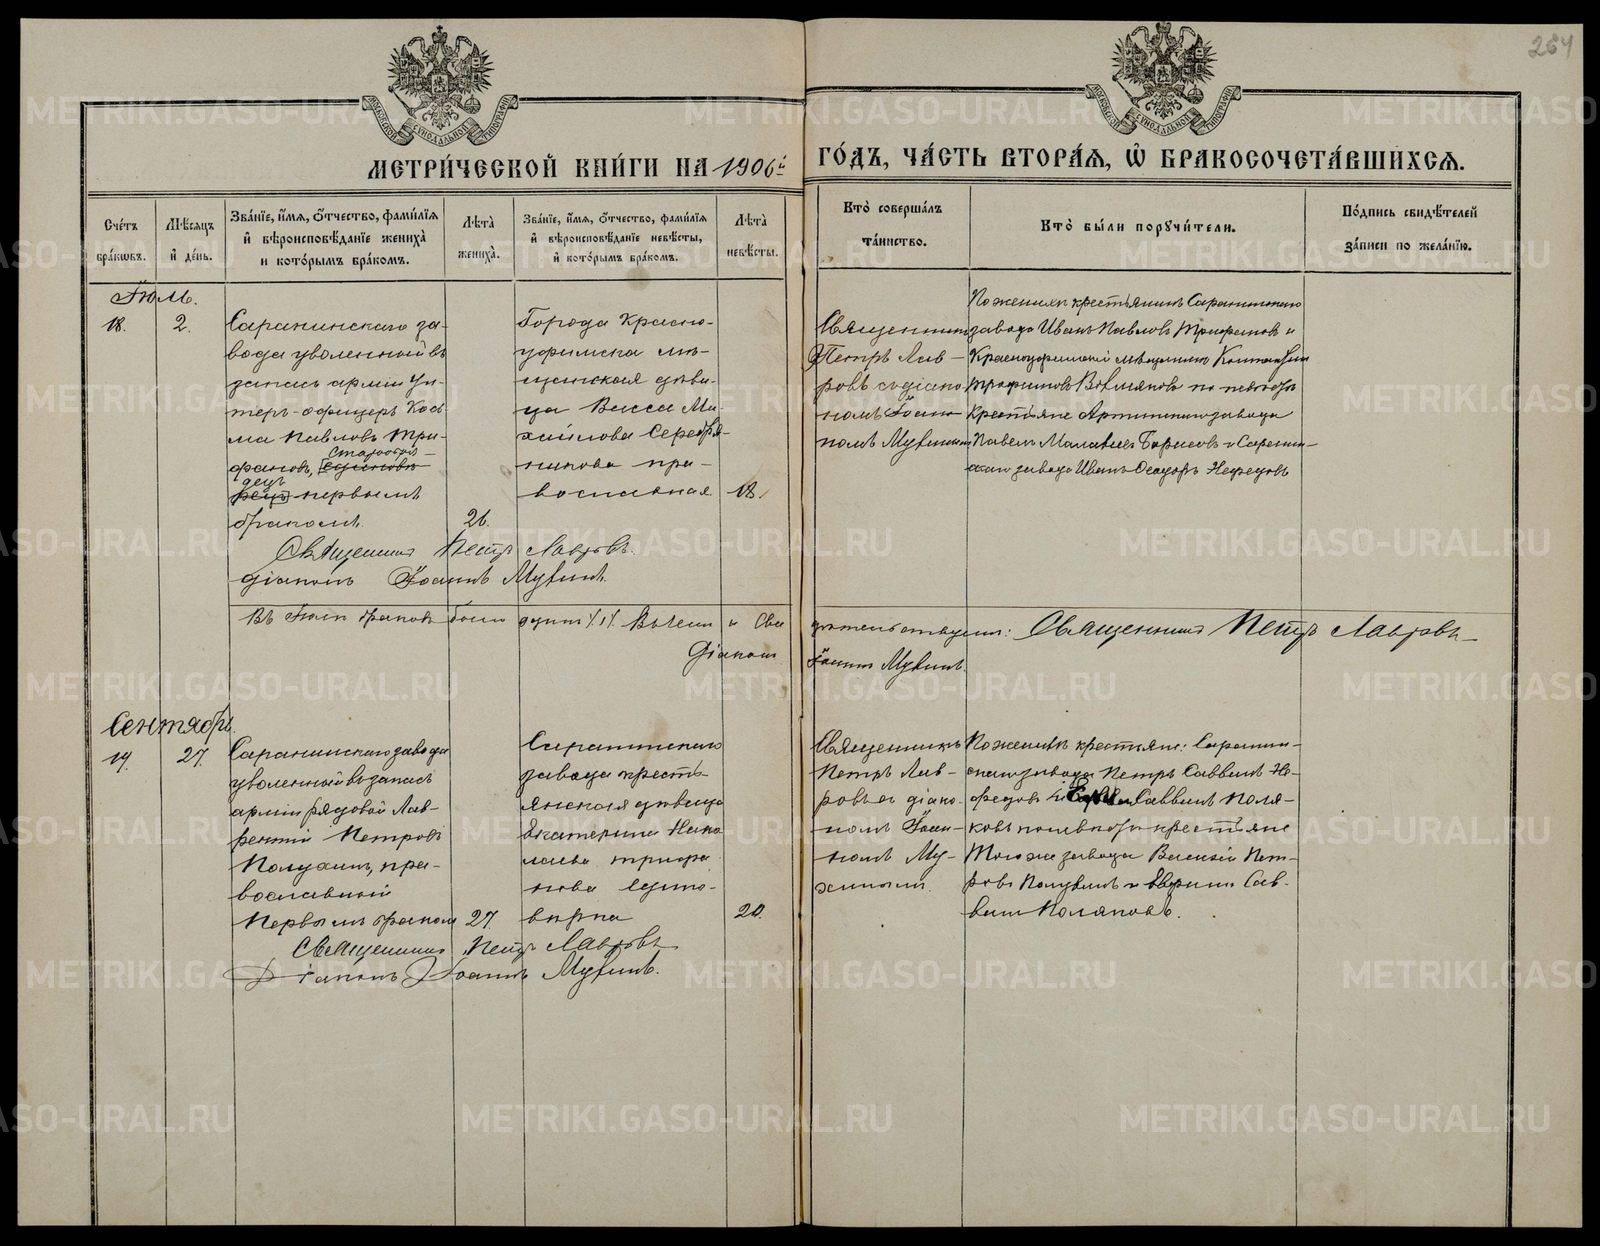 254
МЕТРИ́ЧЕСКОЙ КНИ́ГИ НА 1906й
ГО́ДЪ, ЧА́СТЬ ВТОРА́Я, Ѡ҆ БРАКОСОЧЕТА́ВШИХСЯ.
Сче́тъ бра́кѡвъ.
Мѣ́сяцъ и҆ де́нь.
Зва́нїе, и҆́мя, ѻ҆́тчество, фами́лїя
и҆ вѣроисповѣ́данїе жениха̀
и кото́рымъ бра́комъ.
Лѣта̀ жениха̀.
Зва́нїе, и҆́мя, ѻ҆́тчество, фами́лїя
и҆ вѣроисповѣ́данїе невѣ́сты,
и҆ кото́рымъ бра́комъ.
Лѣта̀ невѣ́сты.
Кто̀ соверша́лъ
та́инство.
Кто̀ бы́ли поручи́тели.
По́дпись свидѣ́телей
за́писи по жела́нїю.
Іюль.
18.
2.
Саранинскаго за-
вода уволенный въ
запасъ арміи Ун-
теръ-офицеръ Кось-
ма Павловъ Три-
фановъ, единовѣ-
старообря-
децъ
рецъ первымъ
бракомъ.
26.
Города Красно-
уфимска мѣ-
щанская дѣви-
ца Васса Ми-
хайлова Серебря-
никова пра-
вославная
18.
Священникъ
Петръ Лав-
ровъ съ діако-
номъ Іоан-
номъ Мухинымъ
По женихѣ крестьянинъ Саранинскаго
завода Иванъ Павловъ Трифановъ и
Красноуфимскій мѣщанинъ
по невѣстѣ
крестьяне Артинскаго завода
Павелъ Борисовъ и Саранин-
скаго завода Иванъ Нефедовъ
Священникъ Петръ Лавровъ.
діаконъ Іоаннъ Мухинъ.
Въ Іюлѣ браковъ было одинъ /1/. Вѣчали и Сви
дѣтельствуютъ: Священникъ Петръ Лавровъ
Діаконъ
Іоаннъ Мухинъ.
Сентябрь.
19.
27.
Саранинскаго завода
уволенный въ запасъ
арміи рядовой Лав-
рентій Петровъ
Полухинъ, пра-
вославный
Первымъ бракомъ
27.
Саранинскаго
завода кресть-
янская дѣвица
Екатерина Нико
лаева Трифа
нова Едино-
вѣрка
20.
Священникъ
Петръ Лав-
ровъ съ діако-
номъ Іоан-
номъ Му-
хинымъ.
По женихѣ крестьяне: Саранин-
скаго завода Петръ Саввинъ Не-
федовъ и Саввинъ Поля-
ковъ по невѣстѣ крестьяне
Тогоже завода Василій Пет-
ровъ Полухинъ и Сав-
винъ Поляковъ.
Священникъ Петръ Лавровъ
Діаконъ Іоаннъ Мухинъ.
METRIKI.GASO-URAL.RU